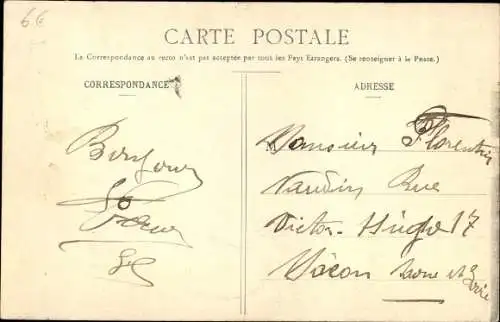 6E
CARTE POSTALE
La Correspondance au recto n'est pas acceptée par tous les Pays Etrangers. (Se renseigner à la Poste.)
CORRESPONDANCE
Bonjour
ADRESSE
Monsieur Florentin
Vaudin Rue
Victor-Hugho 17
Mâcon Saone et Loire